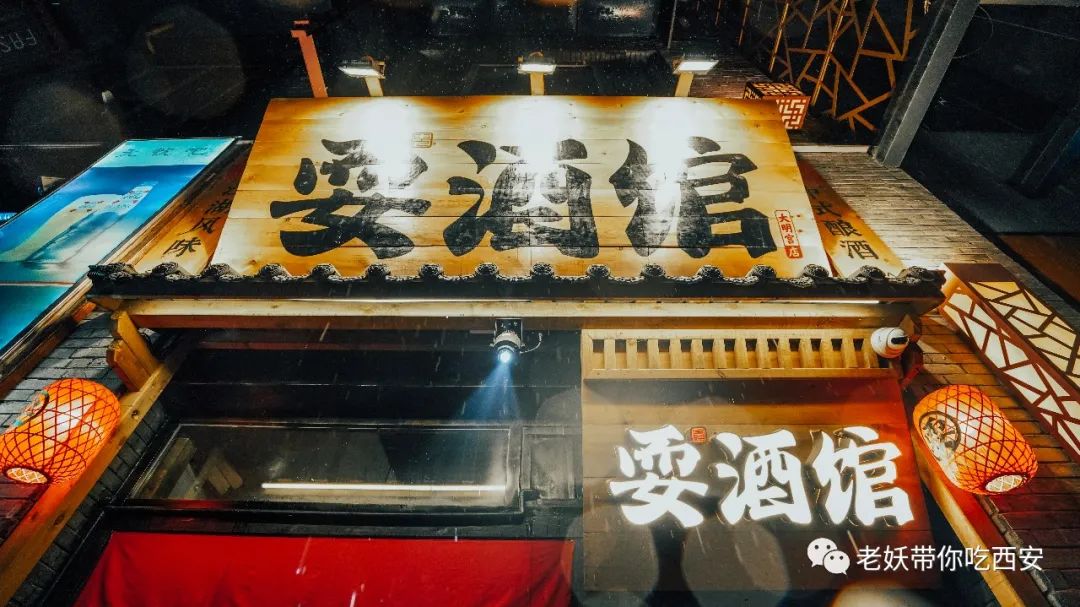 耍酒馆
大明宫店
风味
式酿酒
耍酒馆
老妖带你吃西安